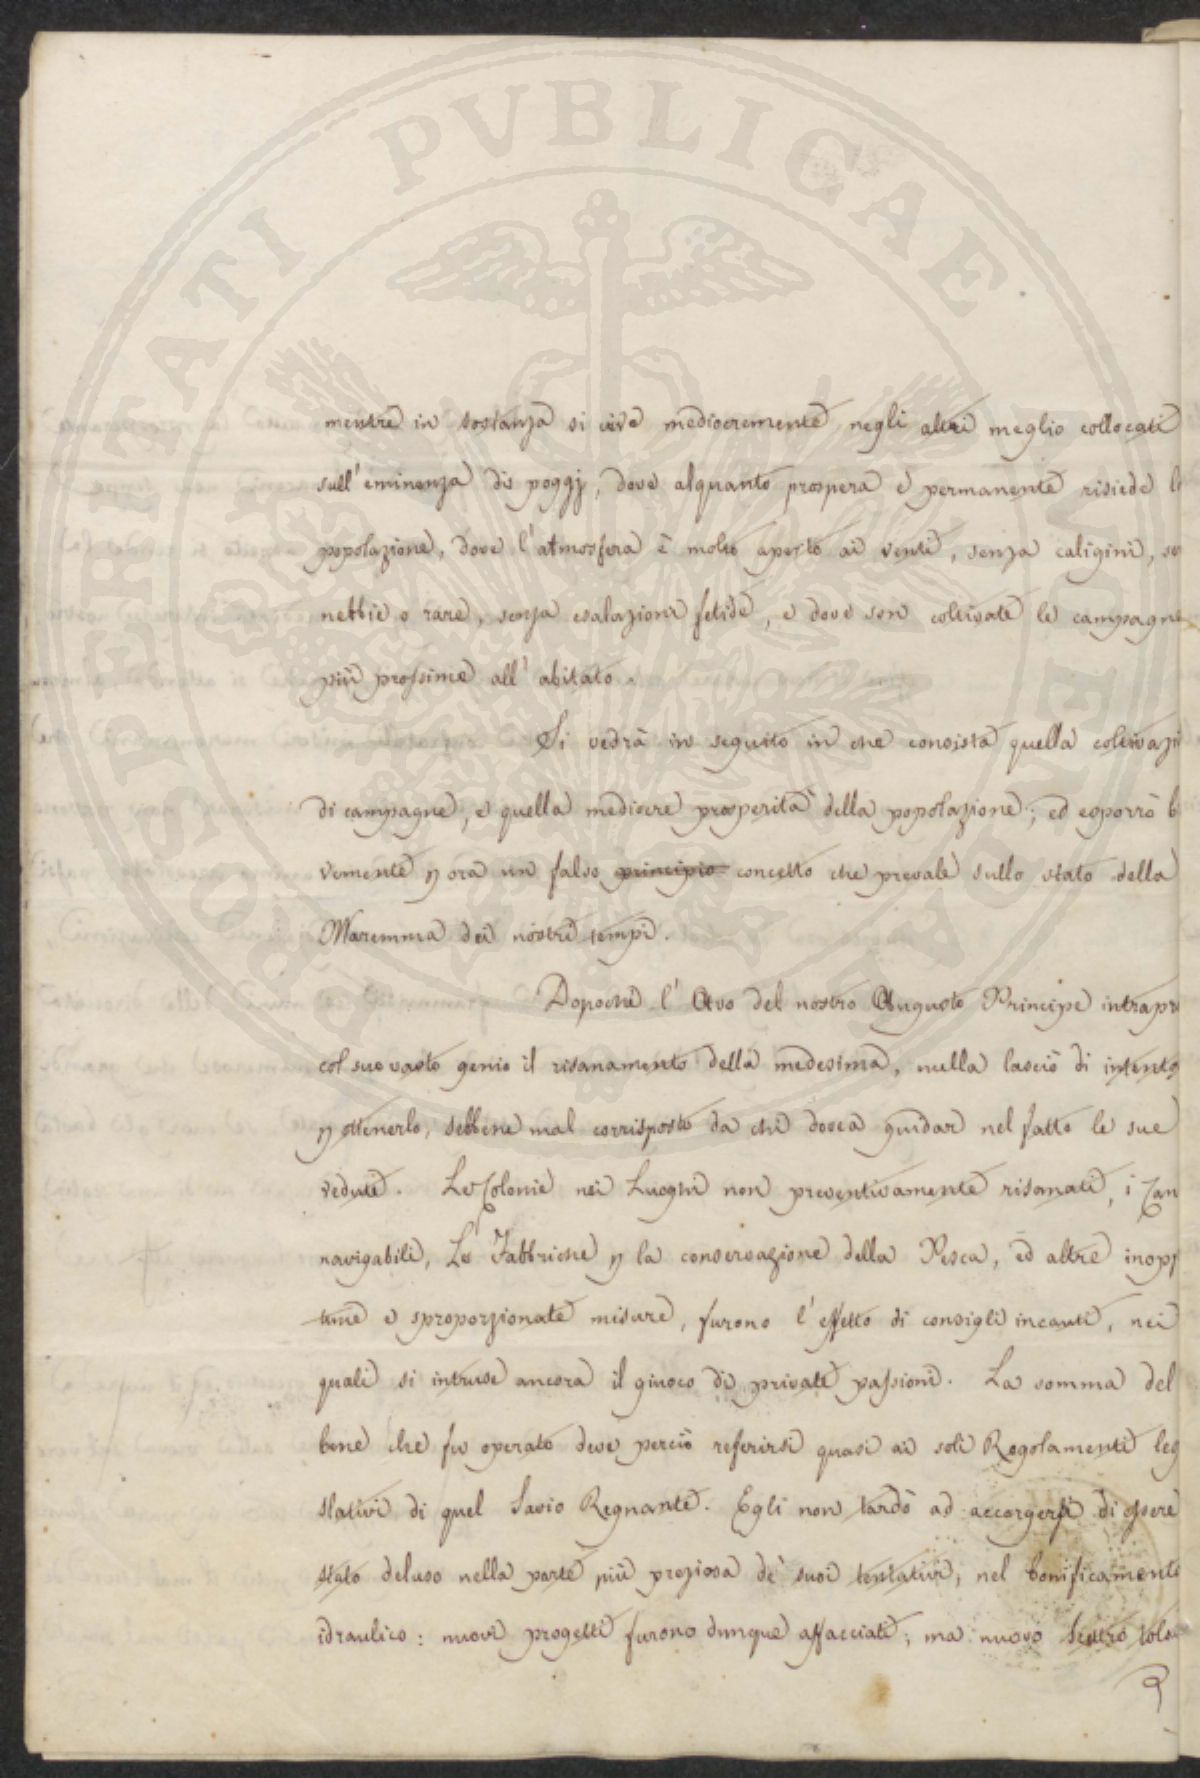 PROSPERITATI PVBLICAE PROVEHENDAE
mentre in sostanza si vive mediocremente negli altri meglio collocati
sull' eminenza di poggj, dove alquanto prospera e permanente risiede l
popolazione, dove l' atmosfera è molto aperto ai venti, senza caligini, se
nebbie o rare, senza esalazioni fetide, e dove son coltivate le campagne
più prossime all' abitato.
Si vedrà in seguito in che consista quella coltivazi
di campagne, e quella mediocre prosperità della popolazione; ed esporrò b
vemente p ora un falso principio concetto che prevale sullo stato della
Maremma dei nostri tempi.
Dopochè l' Avo del nostro Augusto Principe intrapr
col suo vasto genio il risanamento della medesima, nulla lasciò di intento
p ottenerlo, sebbene mal corrisposto da chi dovea guidar nel fatto le sue
vedute. Le Colonie nei Luoghi non preventivamente risanati, i Can
navigabili, Le Fabbriche p la conservazione della Pesca, ed altre inopp
tune e sproporzionate misure, furono l' effetto di consigli incauti, nei
quali si intruse ancora il giuoco di private passioni. La somma del
bene che fu operato deve perciò referirsi quasi ai soli Regolamenti leg
slativi di quel Savio Regnante. Egli non tardò ad accorgersi di essere
stato deluso nella parte più preziosa de' suoi tentativi, nel bonificamento
idraulico: nuovi progetti furono dunque affacciati; ma nuovo